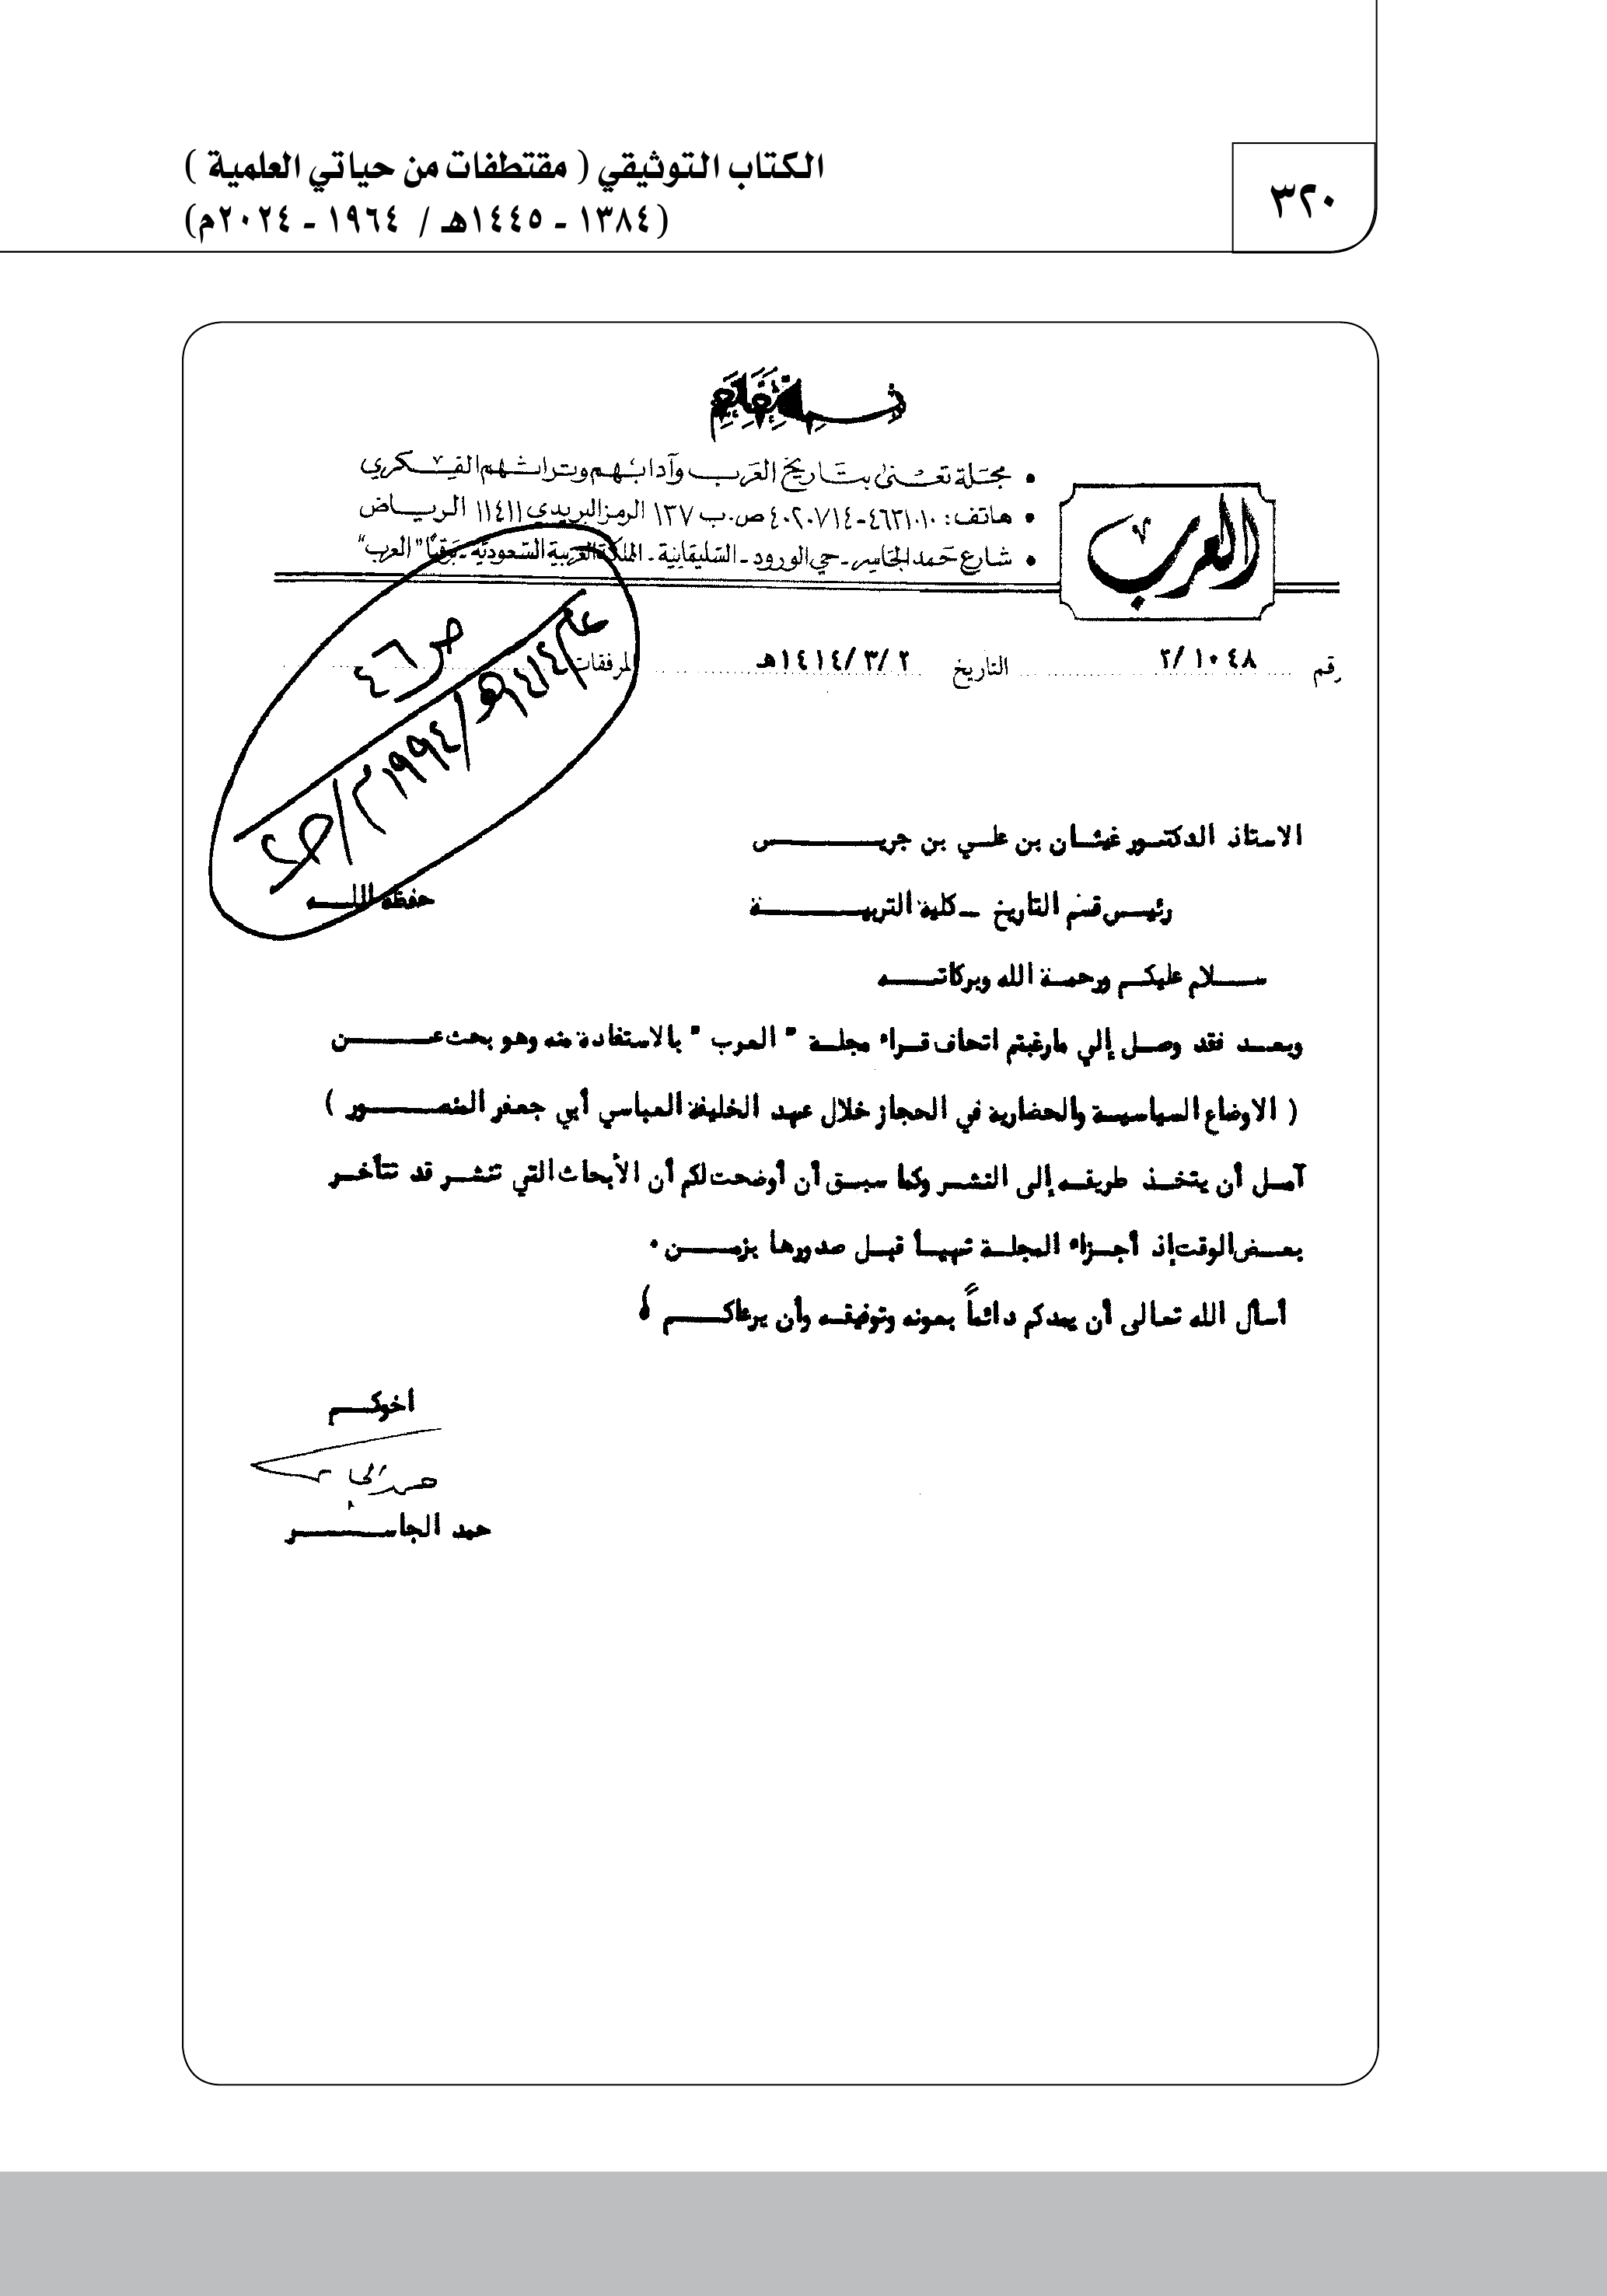 الكتاب التوثيقي ( مقتطفات من حياتي العلمية )
(١٣٨٤ - ١٤٤٥هـ / ١٩٦٤ - ٢٠٢٤م)
٣٢٠
• مجلة تعنى بتاريخ العرب وآدابهم وتراثهم الفكري
• هاتف : ٤٦٣١٠١٠-٤٠٢٠٧١٤ ص.ب ١٣٧ الرمز البريدي ١١٤١١ الرياض
• شارع حمد الجاسر - حي الورود - السليمانية - المملكة العربية السعودية - برقيًا "العرب"
العرب
رقم ٢/١٠٤٨ التاريخ ١٤١٤/٣/٢هـ المرفقات
ص٤٦
عام ١٤١٤هـ/١٩٩٤م/
الاستاذ الدكتور غيثان بن علي بن جريس
رئيس قسم التاريخ - كلية التربية حفظه الله
سلام عليكم ورحمة الله وبركاته
وبعد فقد وصل إلي مارغبتم اتحاف قراء مجلة " العرب " بالاستفادة منه وهو بحث عن
( الاوضاع السياسية والحضارية في الحجاز خلال عهد الخليفة العباسي أبي جعفر المنصور )
آمل أن يتخذ طريقه إلى النشر وكما سبق أن أوضحت لكم أن الأبحاث التي تنشر قد تتأخر
بعض الوقت إذ أجزاء المجلة تهيأ قبل صدورها بزمن .
أسأل الله تعالى أن يمدكم دائماً بعونه وتوفيقه وأن يرعاكم
اخوكم
حمد الجاسر